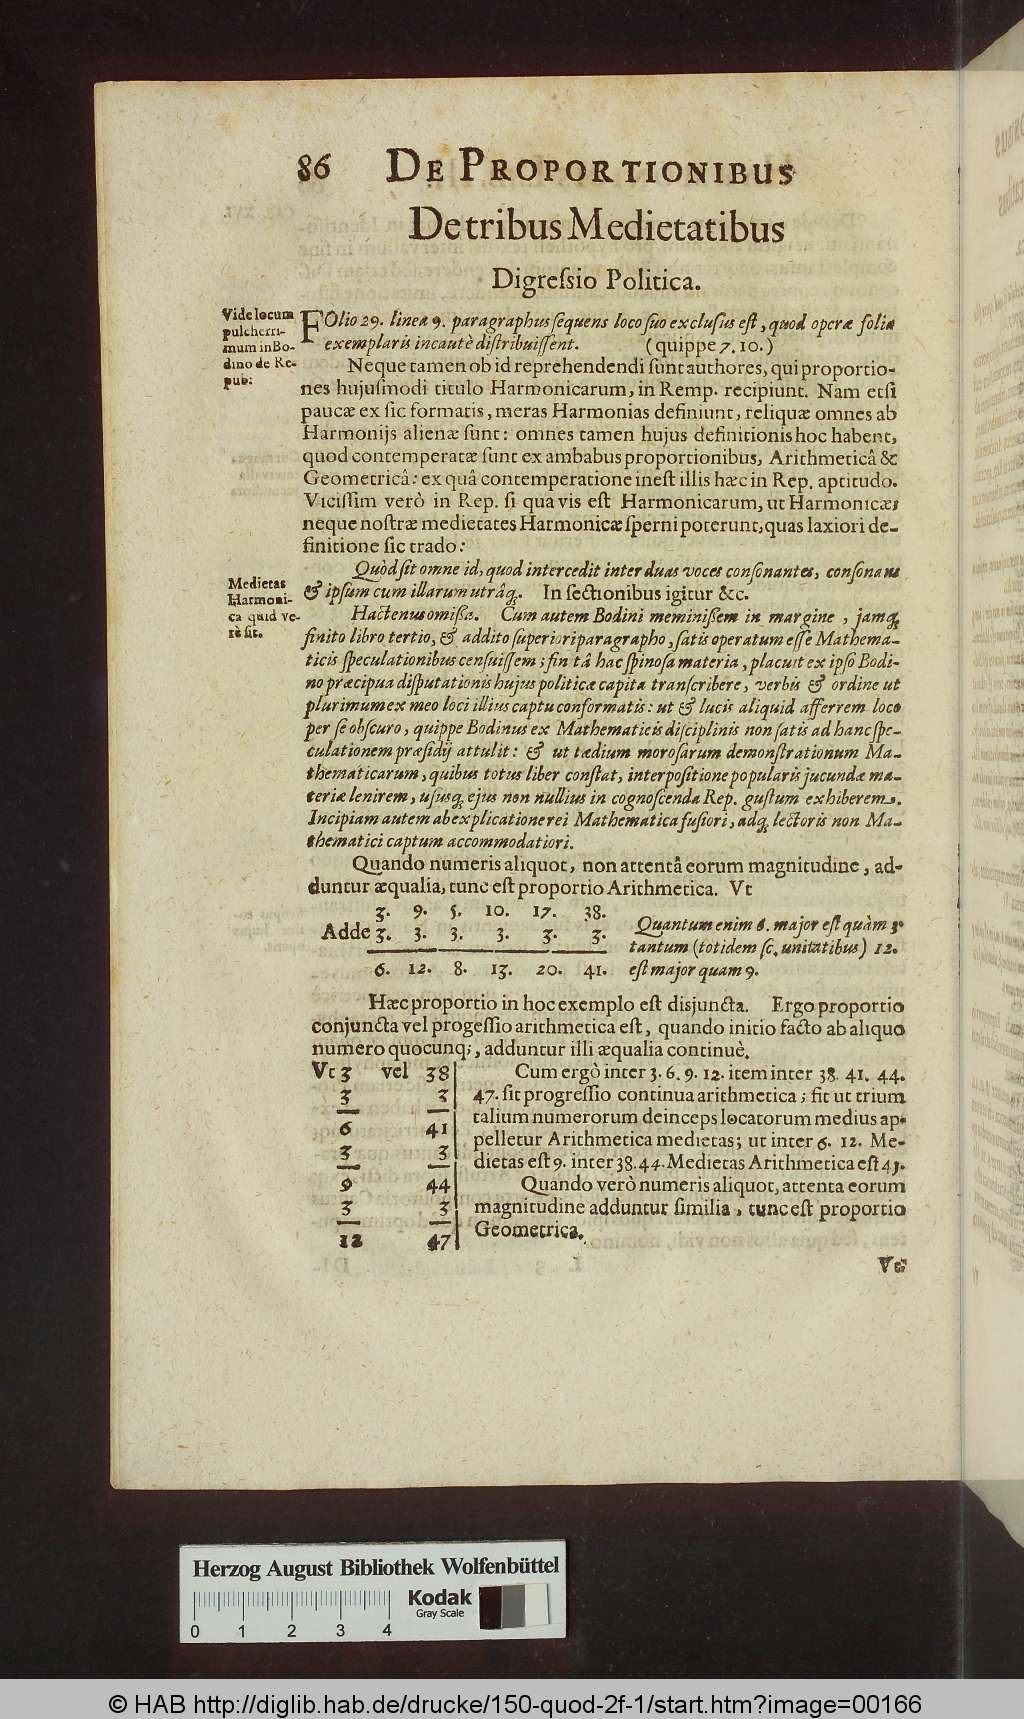 86 DE PROPORTIONIBUS
De tribus Medietatibus
Digreſsio Politica.
Vide locum
pulcherri-
mum in Bo-
dino de Re-
pub:
FOlio 29. linea 9. paragraphus ſequens loco ſuo excluſus eſt, quod operæ folia
exemplaris incautè diſtribuiſſent. (quippe 7. 10.)
Neque tamen ob id reprehendendi ſunt authores, qui proportio-
nes hujuſmodi titulo Harmonicarum, in Remp. recipiunt. Nam etſi
paucæ ex ſic formatis, meras Harmonias definiunt, reliquæ omnes ab
Harmonijs alienæ ſunt: omnes tamen hujus definitionis hoc habent,
quod contemperatæ ſunt ex ambabus proportionibus, Arithmeticâ &
Geometricâ: ex quâ contemperatione ineſt illis hæc in Rep. aptitudo.
Viciſſim verò in Rep. ſi qua vis eſt Harmonicarum, ut Harmonicæ;
neque noſtræ medietates Harmonicæ ſperni poterunt, quas laxiori de-
finitione ſic trado:
Medietas
Harmoni-
ca quid ve-
rè ſit.
Quòd ſit omne id, quod intercedit inter duas voces conſonantes, conſonans
& ipſum cum illarum utrâq;. In ſectionibus igitur &c.
Hactenus omiſſa. Cum autem Bodini meminiſſem in margine, jamq;
finito libro tertio, & addito ſuperiori paragrapho, ſatis operatum eſſe Mathema-
ticis ſpeculationibus cenſuiſſem; fin tâ hac ſpinoſa materia, placuit ex ipſo Bodi-
no præcipua diſputationis hujus politicæ capita tranſcribere, verbis & ordine ut
plurimum ex meo loci illius captu conformatis: ut & lucis aliquid afferrem loco
per ſe obſcuro, quippe Bodinus ex Mathematicis diſciplinis non ſatis ad hanc ſpe-
culationem præſidij attulit: & ut tædium moroſarum demonſtrationum Ma-
thematicarum, quibus totus liber conſtat, interpoſitione popularis jucundæ ma-
teriæ lenirem, uſusq; ejus non nullius in cognoſcenda Rep. guſtum exhiberem.
Incipiam autem ab explicatione rei Mathematica fuſiori, adq; lectoris non Ma-
thematici captum accommodatiori.
Quando numeris aliquot, non attentâ eorum magnitudine, ad-
duntur æqualia, tunc eſt proportio Arithmetica. Vt
3. 9. 5. 10. 17. 38.
Adde 3. 3. 3. 3. 3. 3.
6. 12. 8. 13. 20. 41.
Quantum enim 6. major eſt quàm 3.
tantum (totidem ſc. unitatibus) 12.
eſt major quam 9.
Hæc proportio in hoc exemplo eſt disjuncta. Ergo proportio
conjuncta vel progeſſio arithmetica eſt, quando initio facto ab aliquo
numero quocunq;, adduntur illi æqualia continuè.
Vt 3 vel 38
3 3
6 41
3 3
9 44
3 3
12 47
Cum ergò inter 3. 6. 9. 12. item inter 38. 41. 44.
47. ſit progreſſio continua arithmetica; fit ut trium
talium numerorum deinceps locatorum medius ap-
pelletur Arithmetica medietas; ut inter 6. 12. Me-
dietas eſt 9. inter 38. 44. Medietas Arithmetica eſt 41.
Quando verò numeris aliquot, attenta eorum
magnitudine adduntur ſimilia, tunc eſt proportio
Geometrica.
Vt
Herzog August Bibliothek Wolfenbüttel
Kodak
Gray Scale
0 1 2 3 4
© HAB http://diglib.hab.de/drucke/150-quod-2f-1/start.htm?image=00166